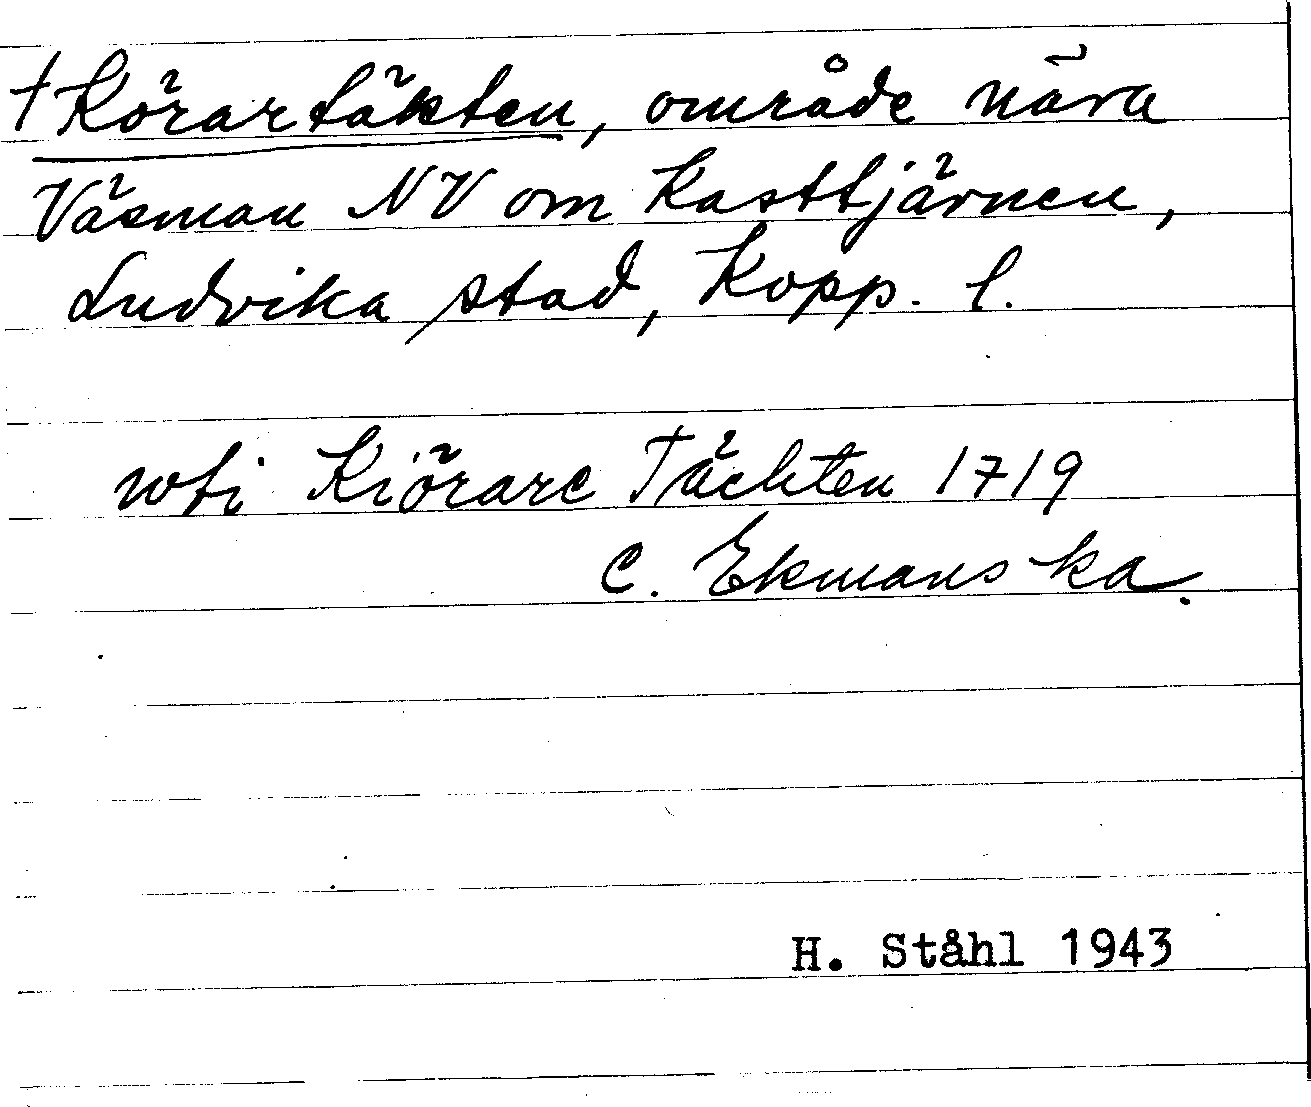 †Körartäkten, område nära
Väsman NV om Kasttjärnen,
Ludvika stad, Kopp. l.
wti Kiörare Tächten 1719
C. Ekmans ka.
H. Ståhl 1943